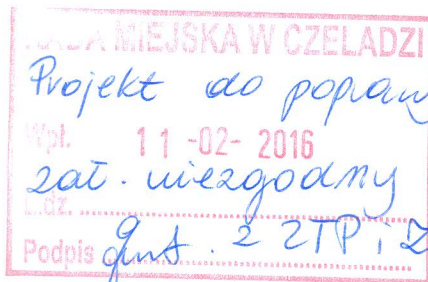 RADA MIEJSKA W CZELADZI
Projekt do popraw
Wpł. 11 -02- 2016
zał. niezgodny
L.dz.
Podpis z ZTP i Z